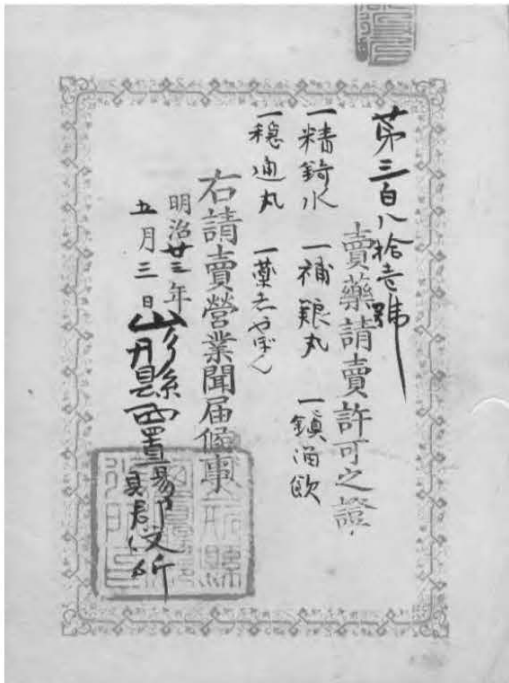 第三百八拾壱號
賣藥請賣許可之證
一精錡水 一補養丸 一鎮溜飲
一穏通丸 一薬志やぼん
右請賣營業聞届候事
明治廿三年
五月三日
山形縣西置賜郡役所